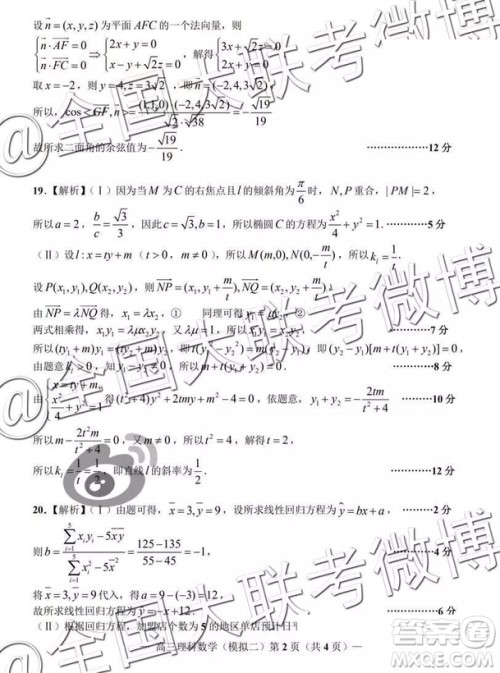 设 n⃗=(x,y,z) 为平面 AFC 的一个法向量，则
{n⃗·AF⃗=0 {n⃗·FC⃗=0 ⇒ {2x+y=0 {x-y+√2z=0，解得 {3x+√2z=0 {2x+y=0
取 x=-2，则 y=4, z=3√2，即 n⃗=(-2,4,3√2)
所以，cos<GF⃗,n⃗>=(1,1,0)·(-2,4,3√2)/(√2·√38)=√19/19
故所求二面角的余弦值为-√19/19 ……………12 分
19.【解析】（Ⅰ）因为当 M 为 C 的右焦点且 l 的倾斜角为 π/6 时，N,P 重合，|PM|=2，
所以 a=2，b/c=√3/3，因此 c=√3, b=1，所以椭圆 C 的方程为 x²/4+y²=1. …………5 分
（Ⅱ）设 l:x=ty+m（t>0，m≠0），所以 M(m,0),N(0,-m/t)，所以 k_l=1/t.
设 P(x₁,y₁),Q(x₂,y₂)，所以 NP⃗=(x₁,y₁+m/t), NQ⃗=(x₂,y₂+m/t)
由 NP⃗=λNQ⃗ 得，x₁=λx₂，① 同理可得 ②
两式相乘得，x₁y₁=λμx₂y₂，又 λμ=1，所以 x₁y₁=x₂y₂ ……………7 分
所以 (ty₁+m)y₁=(ty₂+m)y₂，即 (y₁-y₂)[m+t(y₁+y₂)]=0
由题意 k_l>0，知 ……………8 分
由 {x=ty+m 得 (t²+4)y²+2tmy+m²-4=0，依题意，y₁+y₂=-2tm/(t²+4) ……………10 分
所以 -2t²m/(t²+4)+m=0，又 m≠0，所以 t²=4，解得 t=2，
所以 k_l=1/t=1/2，即直线 l 的斜率为 1/2. ……………12 分
20.【解析】（Ⅰ）由题可得，x̄=3,ȳ=9，设所求线性回归方程为 ŷ=bx+a， ……………2 分
则 b=(∑xᵢyᵢ-5x̄ȳ)/(∑xᵢ²-5x̄²)=(125-135)/(55-45)=-1，
将 x̄=3,ȳ=9 代入，得 a=9-(-3)=12，
故所求线性回归方程为 ŷ=-x+12. ……………6 分
（Ⅱ）根据回归方程，加盟店个数为 5 的地区单店预计日
— 高三理科数学（模拟二）第 2 页（共 4 页）—
@全国大联考微博
@全国大联考微博